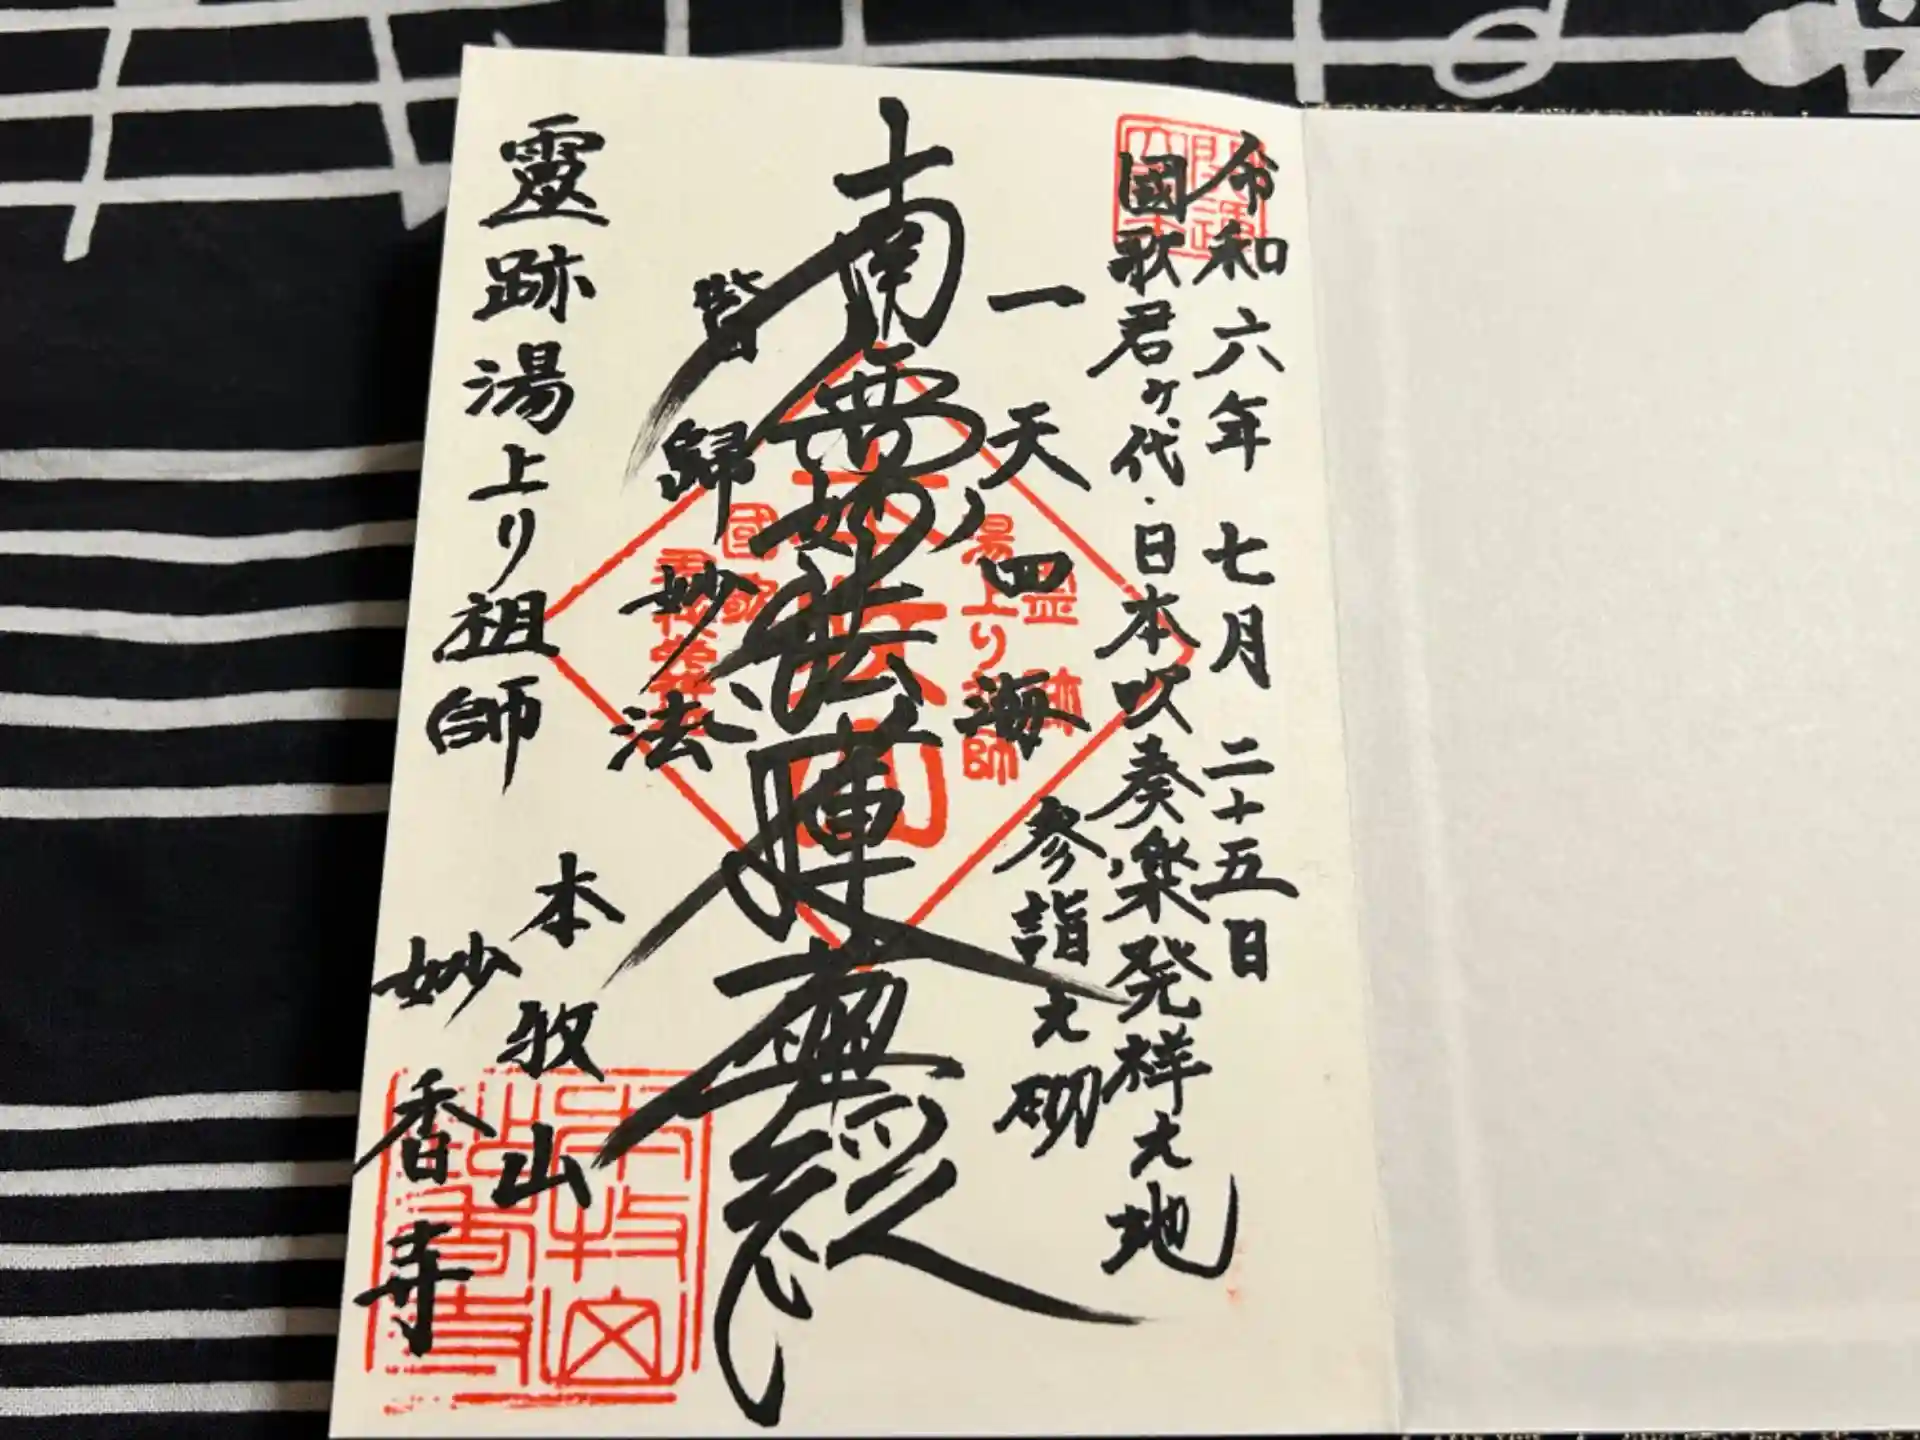 令和六年 七月 二十五日
國歌君ヶ代・日本吹奏楽発祥之地
参詣之砌
一天四海
南無妙法蓮華経
皆歸妙法
靈跡湯上り祖師
本牧山
妙香寺
霊跡
湯上り祖師
國歌